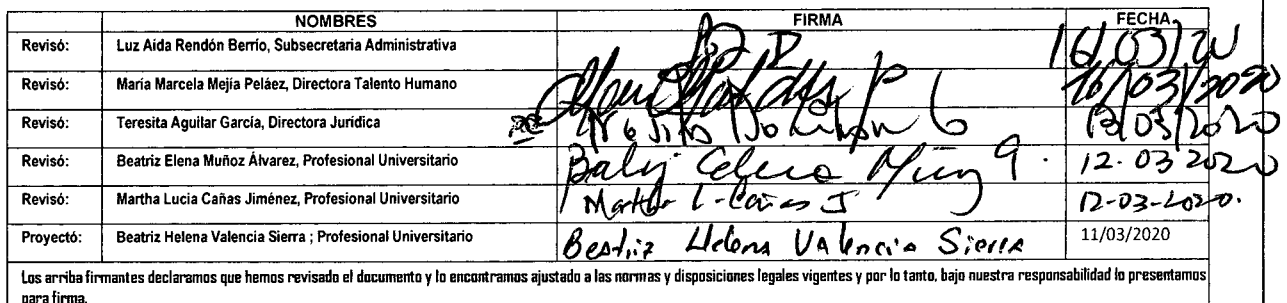 NOMBRES FIRMA FECHA
Revisó: Luz Aida Rendón Berrío, Subsecretaria Administrativa 16/03/20
Revisó: María Marcela Mejía Peláez, Directora Talento Humano 16/03/2020
Revisó: Teresita Aguilar García, Directora Jurídica 13/03/2020
Revisó: Beatriz Elena Muñoz Álvarez, Profesional Universitario 12-03 2020
Revisó: Martha Lucia Cañas Jiménez, Profesional Universitario Martha L-Cañas J 12-03-2020.
Proyectó: Beatriz Helena Valencia Sierra ; Profesional Universitario Beatriz Helena Valencia Sierra 11/03/2020
Los arriba firmantes declaramos que hemos revisado el documento y lo encontramos ajustado a las normas y disposiciones legales vigentes y por lo tanto, bajo nuestra responsabilidad lo presentamos
para firma.